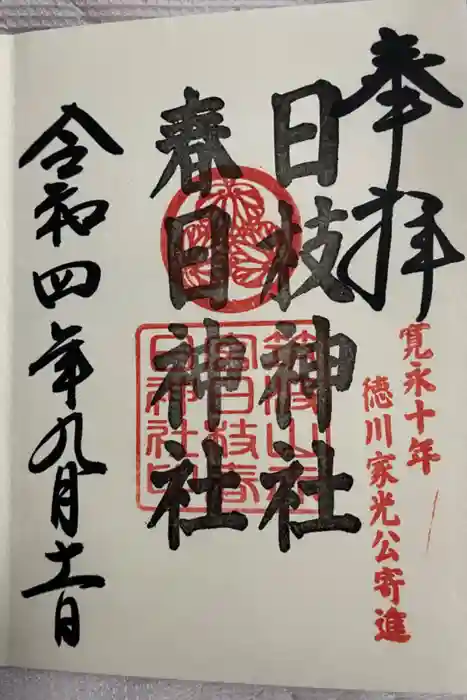 奉拝
寛永十年
徳川家光公寄進
日枝神社
春日神社
筑波山
宮日枝春
日神社印
令和四年九月十一日